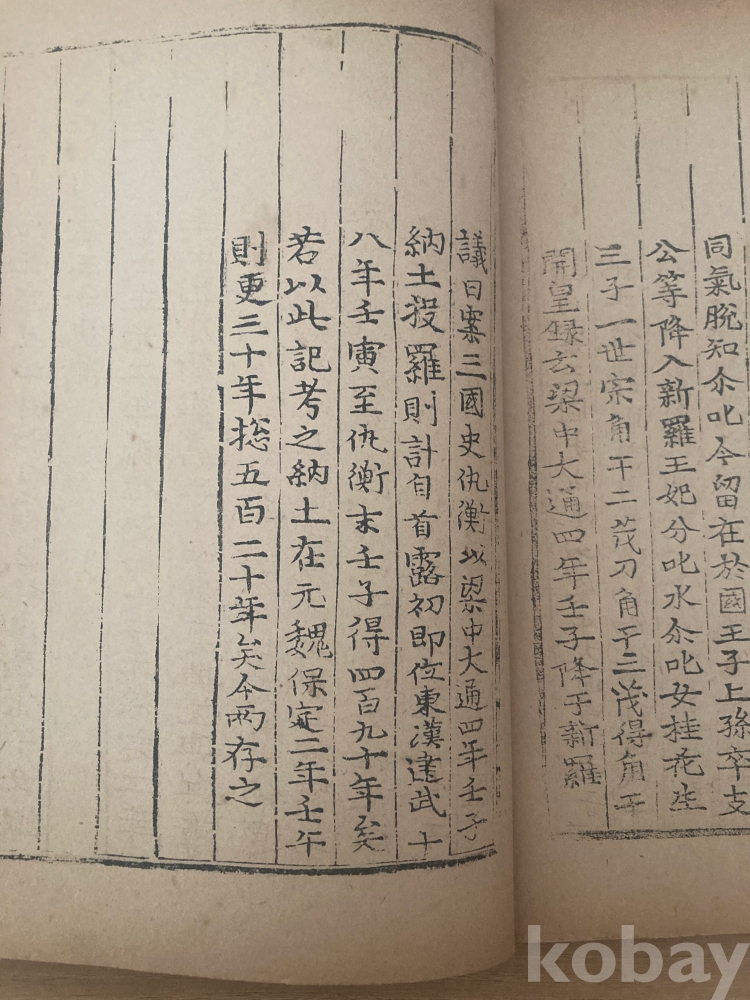 同氣脫知尒叱今留在於國王子上孫卒支
公等降入新羅王妃分叱水尒叱女桂花生
三子一世宗角干二茂刀角干三茂得角干
開皇録云梁中大通四年壬子降于新羅
議曰案三國史仇衡以梁中大通四年壬子
納土投羅則計自首露初即位東漢建武十
八年壬寅至仇衡末壬子得四百九十年矣
若以此記考之納土在元魏保定二年壬午
則更三十年捴五百二十年矣今兩存之
kobay